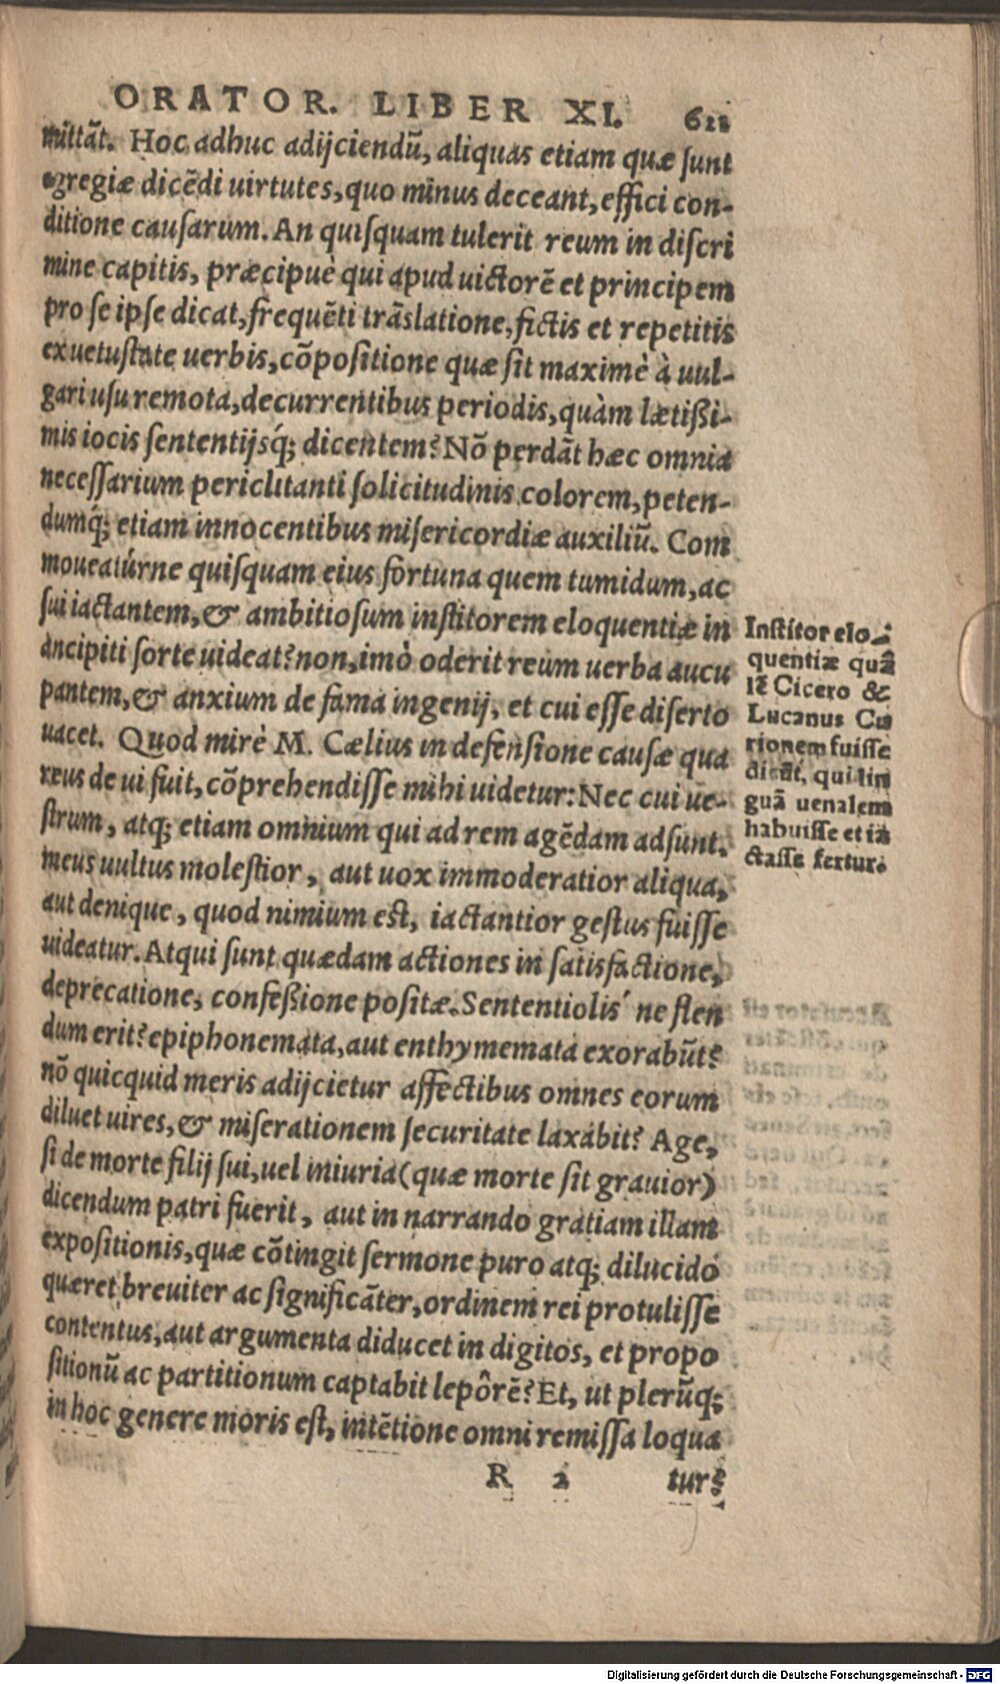 ORATOR. LIBER XI. 611
mittãt. Hoc adhuc adijciendũ, aliquas etiam quæ sunt
egregiæ dicẽdi uirtutes, quo minus deceant, effici con-
ditione causarum. An quisquam tulerit reum in discri
mine capitis, præcipuè qui apud uictorẽ et principem
pro se ipse dicat, frequẽti trãslatione, fictis et repetitis
ex uetustate uerbis, cõpositione quæ sit maximè à uul-
gari usu remota, decurrentibus periodis, quàm lætißi-
mis iocis sententijsq́; dicentem? Nõ perdãt hæc omnia
necessarium periclitanti solicitudinis colorem, peten-
dumq́; etiam innocentibus misericordiæ auxiliũ. Com
moueatúrne quisquam eius fortuna quem tumidum, ac
sui iactantem, & ambitiosum institorem eloquentiæ in
ancipiti sorte uideat? non, imò oderit reum uerba aucu
pantem, & anxium de fama ingenij, et cui esse diserto
uacet. Quod mirè M. Cælius in defensione causæ qua
reus de ui fuit, cõprehendisse mihi uidetur: Nec cui ue-
strum, atq; etiam omnium qui ad rem agẽdam adsunt,
meus uultus molestior, aut uox immoderatior aliqua,
aut denique, quod nimium est, iactantior gestus fuisse
uideatur. Atqui sunt quædam actiones in satisfactione,
deprecatione, confeßione positæ. Sententiolis´ ne flen
dum erit? epiphonemata, aut enthymemata exorabũt?
nõ quicquid meris adijcietur affectibus omnes eorum
diluet uires, & miserationem securitate laxabit? Age,
si de morte filij sui, uel iniuria (quæ morte sit grauior)
dicendum patri fuerit, aut in narrando gratiam illam
expositionis, quæ cõtingit sermone puro atq; dilucido
quæret, breuiter ac significãter, ordinem rei protulisse
contentus, aut argumenta diducet in digitos, et propo
sitionũ ac partitionum captabit lepôrẽ? Et, ut plerũq;
in hoc genere moris est, intẽtione omni remissa loqua
R 2 tur?
Institor elo-
quentiæ quã
lẽ Cicero &
Lucanus Cu
rionem fuisse
dicũt, qui lin
guã uenalem
habuisse et iã
ctasse fertur.
Digitalisierung gefördert durch die Deutsche Forschungsgemeinschaft - DFG